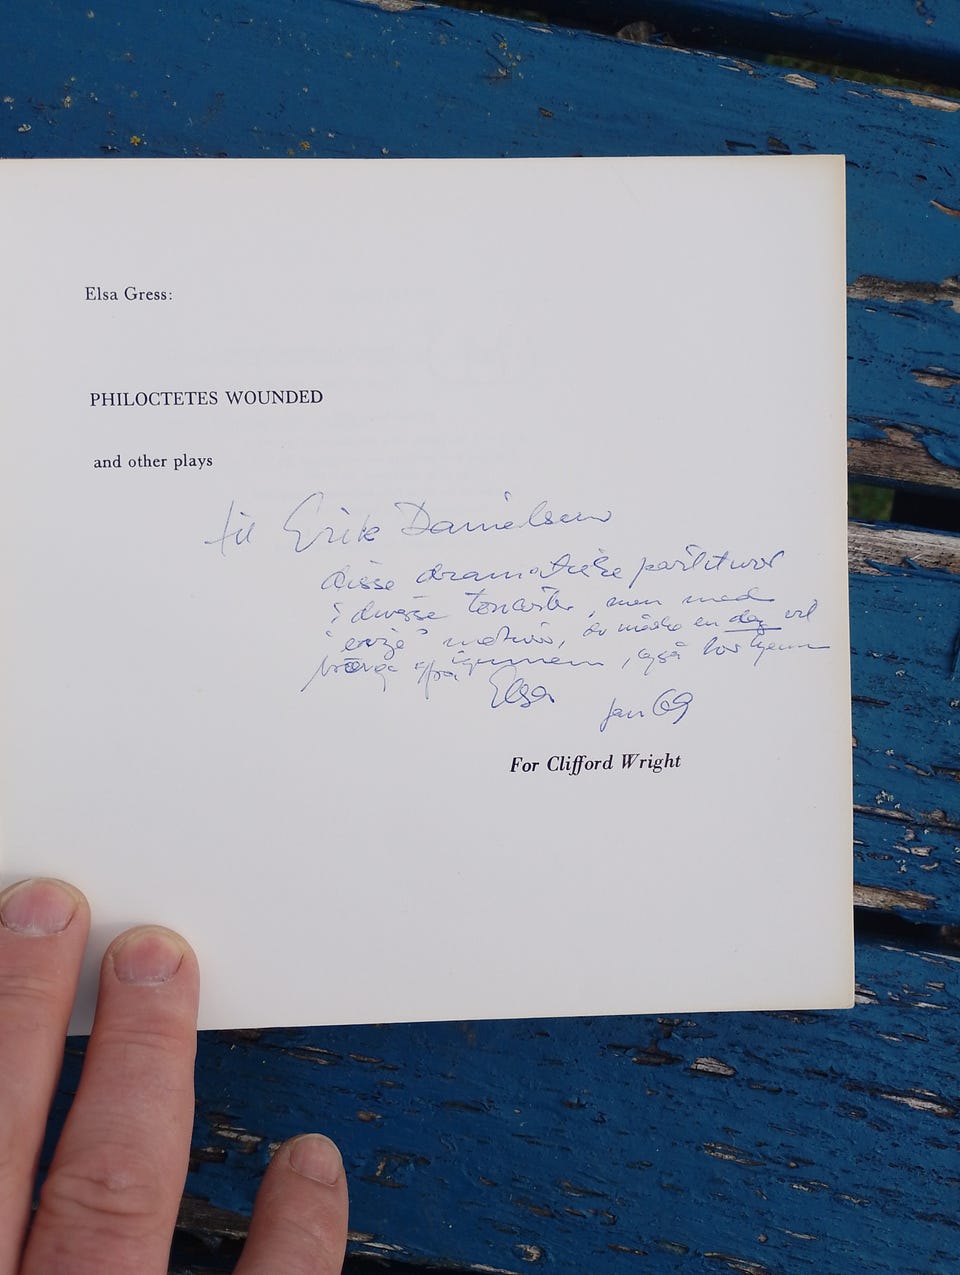 Elsa Gress:
PHILOCTETES WOUNDED
and other plays
til Erik Danielsen
disse dramatiske partiturer
i diverse tonearter, men med
"evige" motiver, du måske en dag vil
trænge igennem, også
Elsa
Jan 69
For Clifford Wright